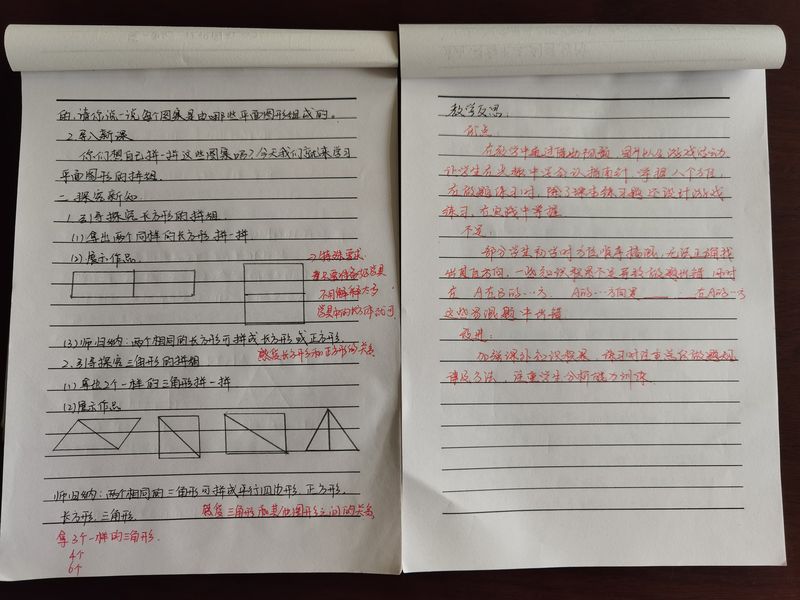 的,请你说一说,每个图案是由哪些平面图形组成的。
2.导入新课
你们想自己拼一拼这些图案吗?今天我们就来学习
平面图形的拼组.
二、探究新知.
1.引导探究长方形的拼组.
(1)拿出两个同样的长方形拼一拼.
(2)展示作品.
不用解释太多
(3)师归纳:两个相同的长方形可拼成长方形或正方形.
感受长方形和正方形的关系
2.引导探究三角形的拼组
(1)拿出2个一样的三角形拼一拼
(2)展示作品
师归纳:两个相同的三角形可拼成平行四边形.正方形.
长方形.三角形.
感受三角形和其他图形之间的关系
拿3个一样的三角形.
4个
6个
教学反思:
优点
在教学中通过播放视频、图片以及游戏活动
让学生在实践中学会认指南针,掌握八个方位,
在做题练习时,除了课本练习题还设计游戏
练习,在实践中掌握
不足:
部分学生初学时方位顺序搞混,无法正确找
出其且方向,一些知识
在 A在B的…方 A的…方向是 在A的…方
这些类型题中出错
改进:
加强课外知识拓展,练习时注重
讲练方法,注重学生分析能力训练.